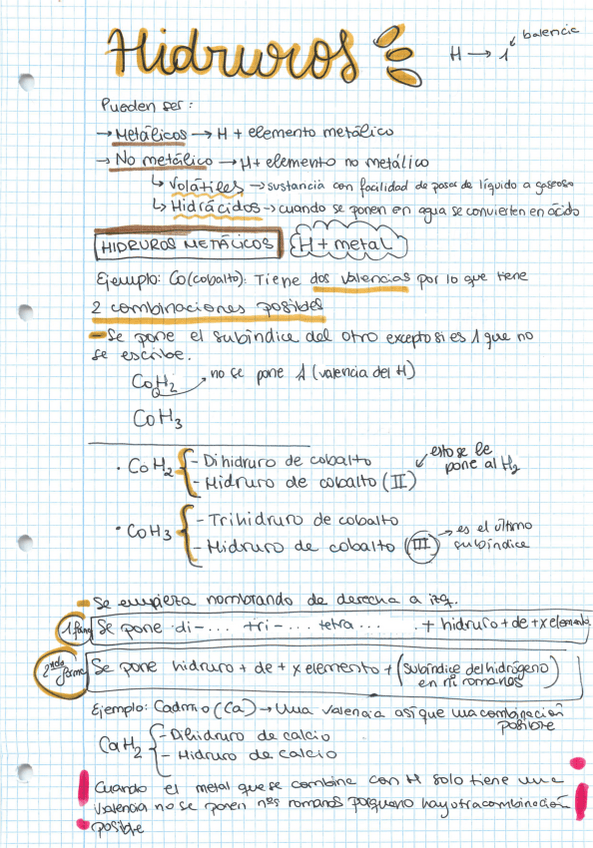 Hidruros
H → 1
valencia
Pueden ser:
→ Metálicos → H + elemento metálico
→ No metálico → H + elemento no metálico
↳ Volátiles → sustancia con facilidad de pasar de líquido a gaseoso
↳ Hidrácidos → cuando se ponen en agua se convierten en ácido
HIDRUROS METÁLICOS H + metal
Ejemplo: Co (cobalto): Tiene dos valencias por lo que tiene
2 combinaciones posibles
- Se pone el subíndice del otro excepto si es 1 que no
se escribe.
CoH2 → no se pone 1 (valencia del H)
CoH3
· CoH2 { - Dihidruro de cobalto
- Hidruro de cobalto (II)
esto se le
pone al H2
· CoH3 { - Trihidruro de cobalto
- Hidruro de cobalto (III) → es el último
subíndice
- Se empieza nombrando de derecha a izq.
1 forma Se pone di-... tri-... tetra... + hidruro + de + x elemento
2nda forma Se pone hidruro + de + x elemento + (subíndice del hidrógeno
en nº romanos)
Ejemplo: Cadmio (Ca) → Una valencia así que una combinación
posible
CaH2 { - Dihidruro de calcio
- Hidruro de calcio
Cuando el metal que se combine con H solo tiene una
valencia no se ponen nºs romanos porque no hay otra combinación
posible